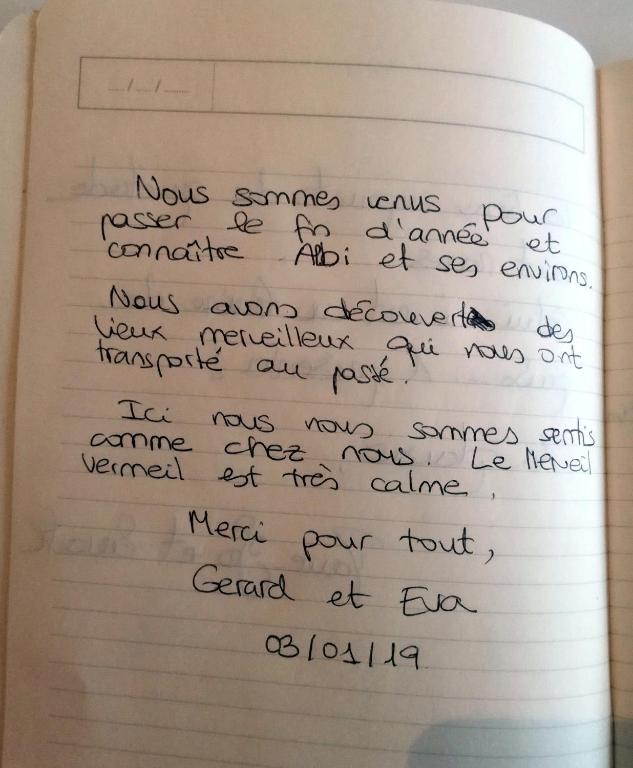 __/__/____
Nous sommes venus pour
passer le fin d'année et
connaître Albi et ses environs.
Nous avons découvert des
lieux merveilleux qui nous ont
transporté au passé.
Ici nous nous sommes sentis
comme chez nous. Le Merveil
Vermeil est très calme.
Merci pour tout,
Gerard et Eva
03/01/19